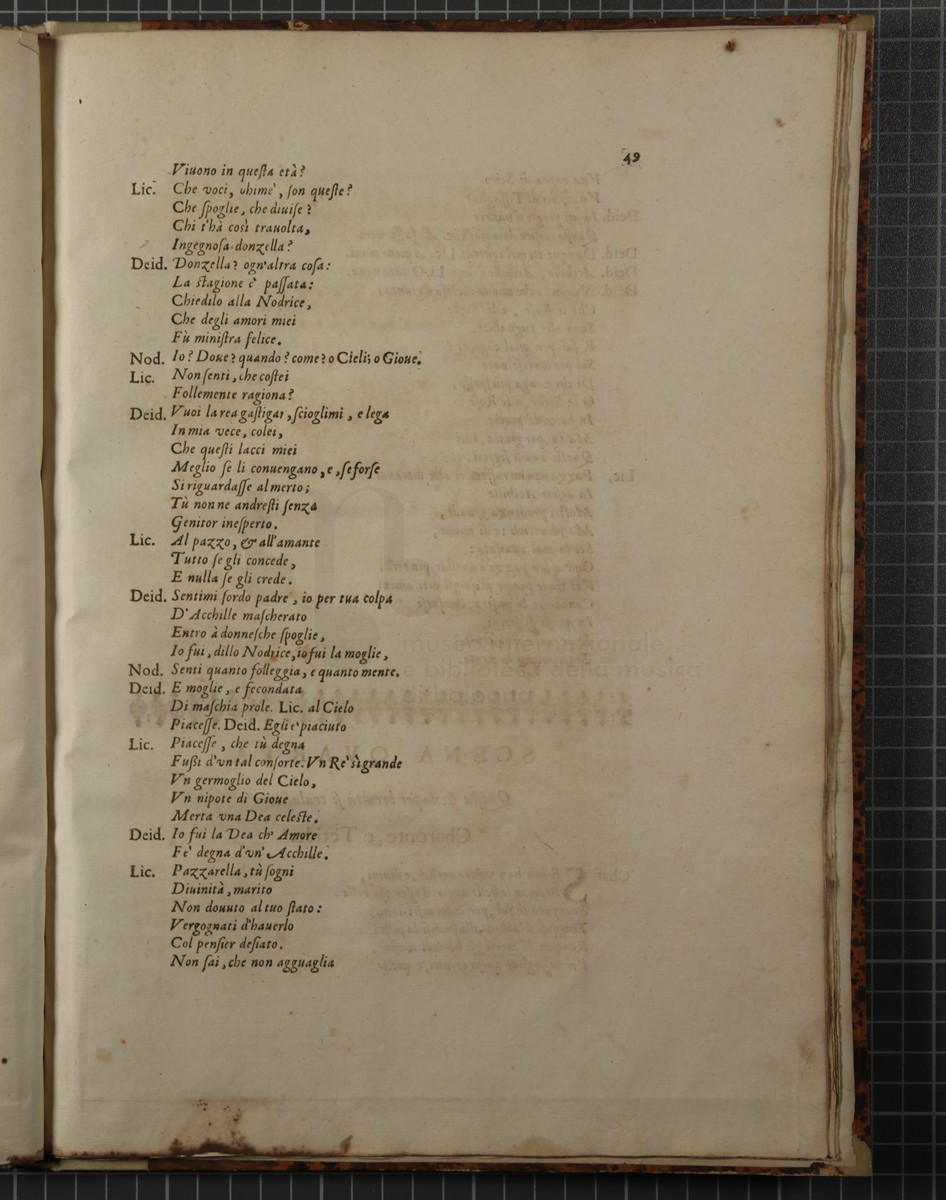 49
Viuono in queſta età?
Lic. Che voci, ohimè, ſon queſte?
Che ſpoglie, che diuiſe?
Chi t'hà così trauolta,
Ingegnoſa donzella?
Deid. Donzella? ogn'altra coſa:
La ſtagione è paſſata:
Chiedilo alla Nodrice,
Che degli amori miei
Fù miniſtra felice.
Nod. Io? Doue? quando? come? o Cieli; o Gioue.
Lic. Non ſenti, che coſtei
Follemente ragiona?
Deid. Vuoi la rea gaſtigar, ſcioglimi, e lega
In mia vece, colei,
Che queſti lacci miei
Meglio ſe li conuengano, e, ſe forſe
Si riguardaſſe al merto;
Tù non ne andreſti ſenza
Genitor ineſperto.
Lic. Al pazzo, & all'amante
Tutto ſe gli concede,
E nulla ſe gli crede.
Deid. Sentimi ſordo padre, io per tua colpa
D'Acchille maſcherato
Entro à donneſche ſpoglie,
Io fui, dillo Nodrice, io fui la moglie,
Nod. Senti quanto folleggia, e quanto mente.
Deid. E moglie, e fecondata
Di maſchia prole. Lic. al Cielo
Piaceſſe. Deid. Egli è piaciuto
Lic. Piaceſſe, che tù degna
Fuſſi d'vn tal conſorte. Vn Rè sì grande
Vn germoglio del Cielo,
Vn nipote di Gioue
Merta vna Dea celeſte.
Deid. Io fui la Dea ch' Amore
Fe' degna d'vn' Acchille.
Lic. Pazzarella, tù ſogni
Diuinità, marito
Non douuto al tuo ſtato:
Vergognati d'hauerlo
Col penſier deſiato.
Non ſai, che non agguaglia
museo internazionale
e biblioteca della musica